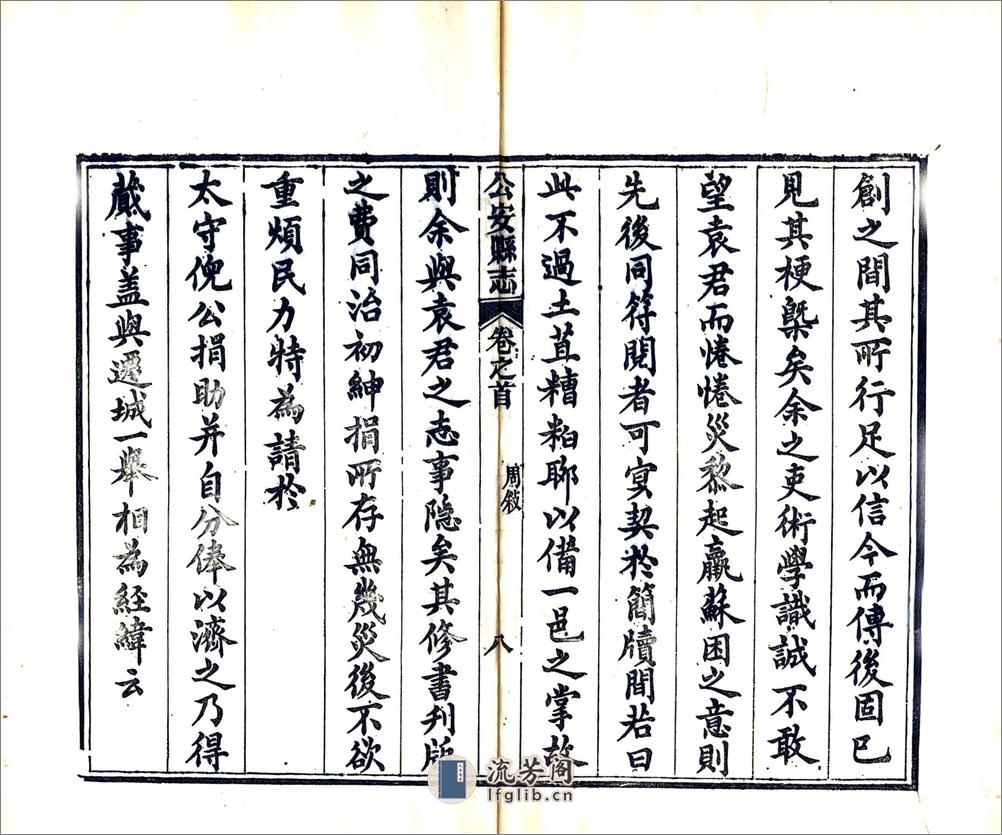 創之間其所行足以信今而傳後固已
見其梗槩矣余之吏術學識誠不敢
望袁君而惓惓災黎起羸蘇困之意則
先後同符閱者可寘契於簡牘間若曰
此不過土苴糟粕聊以備一邑之掌故
公安縣志 卷之首 周敘 八
則余與袁君之志事隱矣其修書刋版
之費同治初紳捐所存無幾災後不欲
重煩民力特為請於
太守倪公捐助并自分俸以濟之乃得
蕆事盖與遷城一舉相為經緯云
流芳阁
lfglib.cn